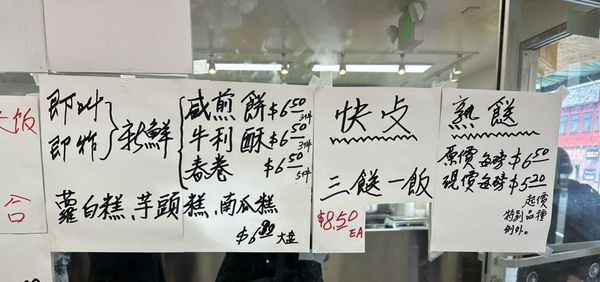 饭
合
即叫
即炸
新鮮
咸煎餅 $6.50 3件
牛利酥 $6.50 3件
春卷 $6.50 5件
蘿白糕,芋頭糕,南瓜糕
大盘
快点
三餸一飯
$8.50 EA
熟餸
原價每磅$6.50
現價每磅$5.20
起價
特别品種
例外。